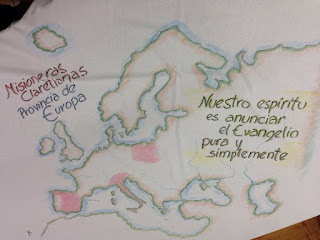 Misioneras
Claretianas
Provincia de
Europa
Nuestro espíritu
es anunciar
el Evangelio
pura y
simplemente